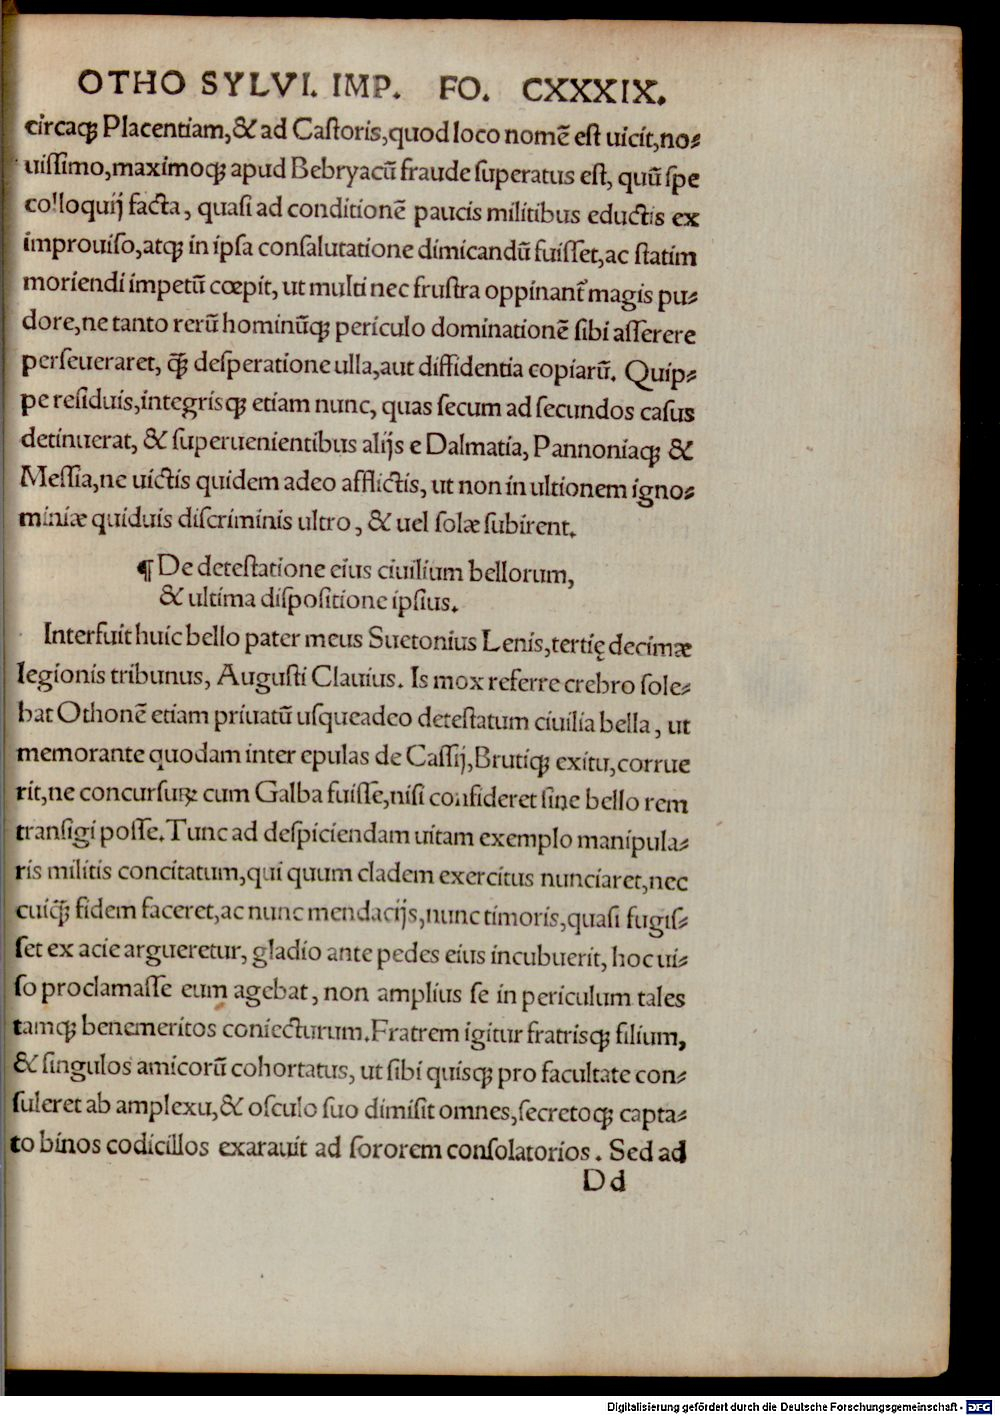 OTHO SYLVI. IMP. FO. CXXXIX.
circaqꝫ Placentiam,& ad Castoris,quod loco nomē est uicit,no⸗
uissimo,maximoqꝫ apud Bebryacū fraude superatus est, quū spe
colloquij facta, quasi ad conditionē paucis militibus eductis ex
improuiso,atqꝫ in ipsa consalutatione dimicandū fuisset,ac statim
moriendi impetū cœpit, ut multi nec frustra oppinant᷑ magis pu⸗
dore,ne tanto rerū hominūqꝫ periculo dominationē sibi asserere
perseueraret, q̄ꝫ desperatione ulla,aut diffidentia copiarū. Quip⸗
pe residuis,integrisqꝫ etiam nunc, quas secum ad secundos casus
detinuerat, & superuenientibus alijs e Dalmatia, Pannoniaqꝫ &
Messia,ne uictis quidem adeo afflictis, ut non in ultionem igno⸗
miniæ quiduis discriminis ultro, & uel solæ subirent.
¶ De detestatione eius ciuilium bellorum,
& ultima dispositione ipsius.
Interfuit huic bello pater meus Suetonius Lenis,tertię decimæ
legionis tribunus, Augusti Clauius. Is mox referre crebro sole⸗
bat Othonē etiam priuatū usqueadeo detestatum ciuilia bella, ut
memorante quodam inter epulas de Cassij,Brutiqꝫ exitu,corrue
rit,ne concursuꝝ cum Galba fuisse,nisi confideret sine bello rem
transigi posse.Tunc ad despiciendam uitam exemplo manipula⸗
ris militis concitatum,qui quum cladem exercitus nunciaret,nec
cuiq̄ꝫ fidem faceret,ac nunc mendacijs,nunc timoris,quasi fugis⸗
set ex acie argueretur, gladio ante pedes eius incubuerit, hoc ui⸗
so proclamasse eum agebat, non amplius se in periculum tales
tamqꝫ benemeritos coniecturum.Fratrem igitur fratrisqꝫ filium,
& singulos amicorū cohortatus, ut sibi quisqꝫ pro facultate con⸗
suleret ab amplexu,& osculo suo dimisit omnes,secretoqꝫ capta⸗
to binos codicillos exarauit ad sororem consolatorios. Sed ad
Dd
Digitalisierung gefördert durch die Deutsche Forschungsgemeinschaft - DFG